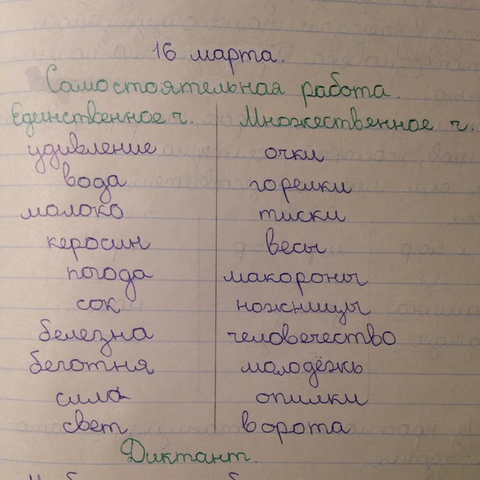 16 марта.
Самостоятельная работа.
Единственное ч. Множественное ч.
удивление очки
вода горелки
молоко тиски
керосин весы
погода макороны
сок ножницы
белезна человечество
беготня молодёжь
сила опилки
свет ворота
Диктант.